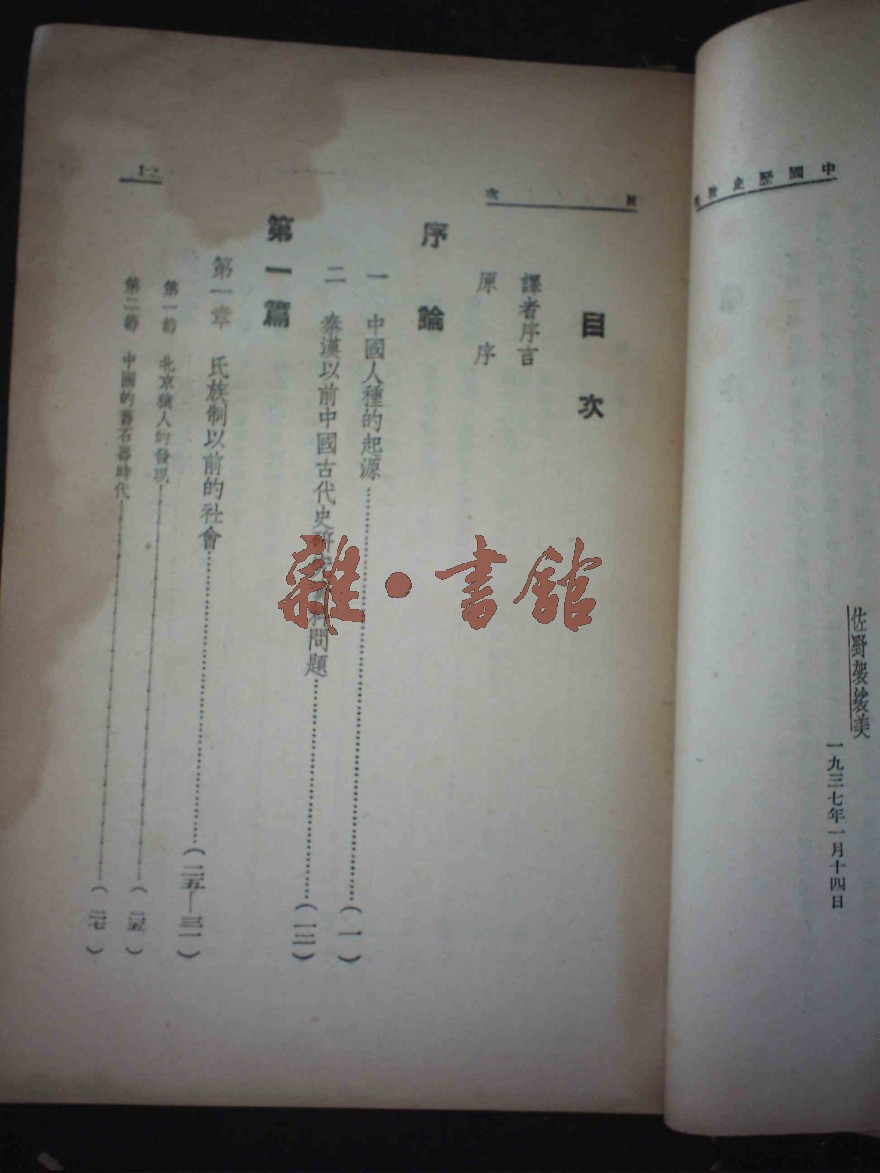 中國歷史教程
佐野袈裟美
一九三七年一月十四日
目次
目次
譯者序言
原序
序論
一 中國人種的起源……(一)
二 秦漢以前中國古代史研究資料問題……(一二)
第一篇
第一章 氏族制以前的社會……(二五—三一)
第一節 北京猿人的發現……(二五)
第二節 中國的舊石器時代……(二七)
一
雜·書館